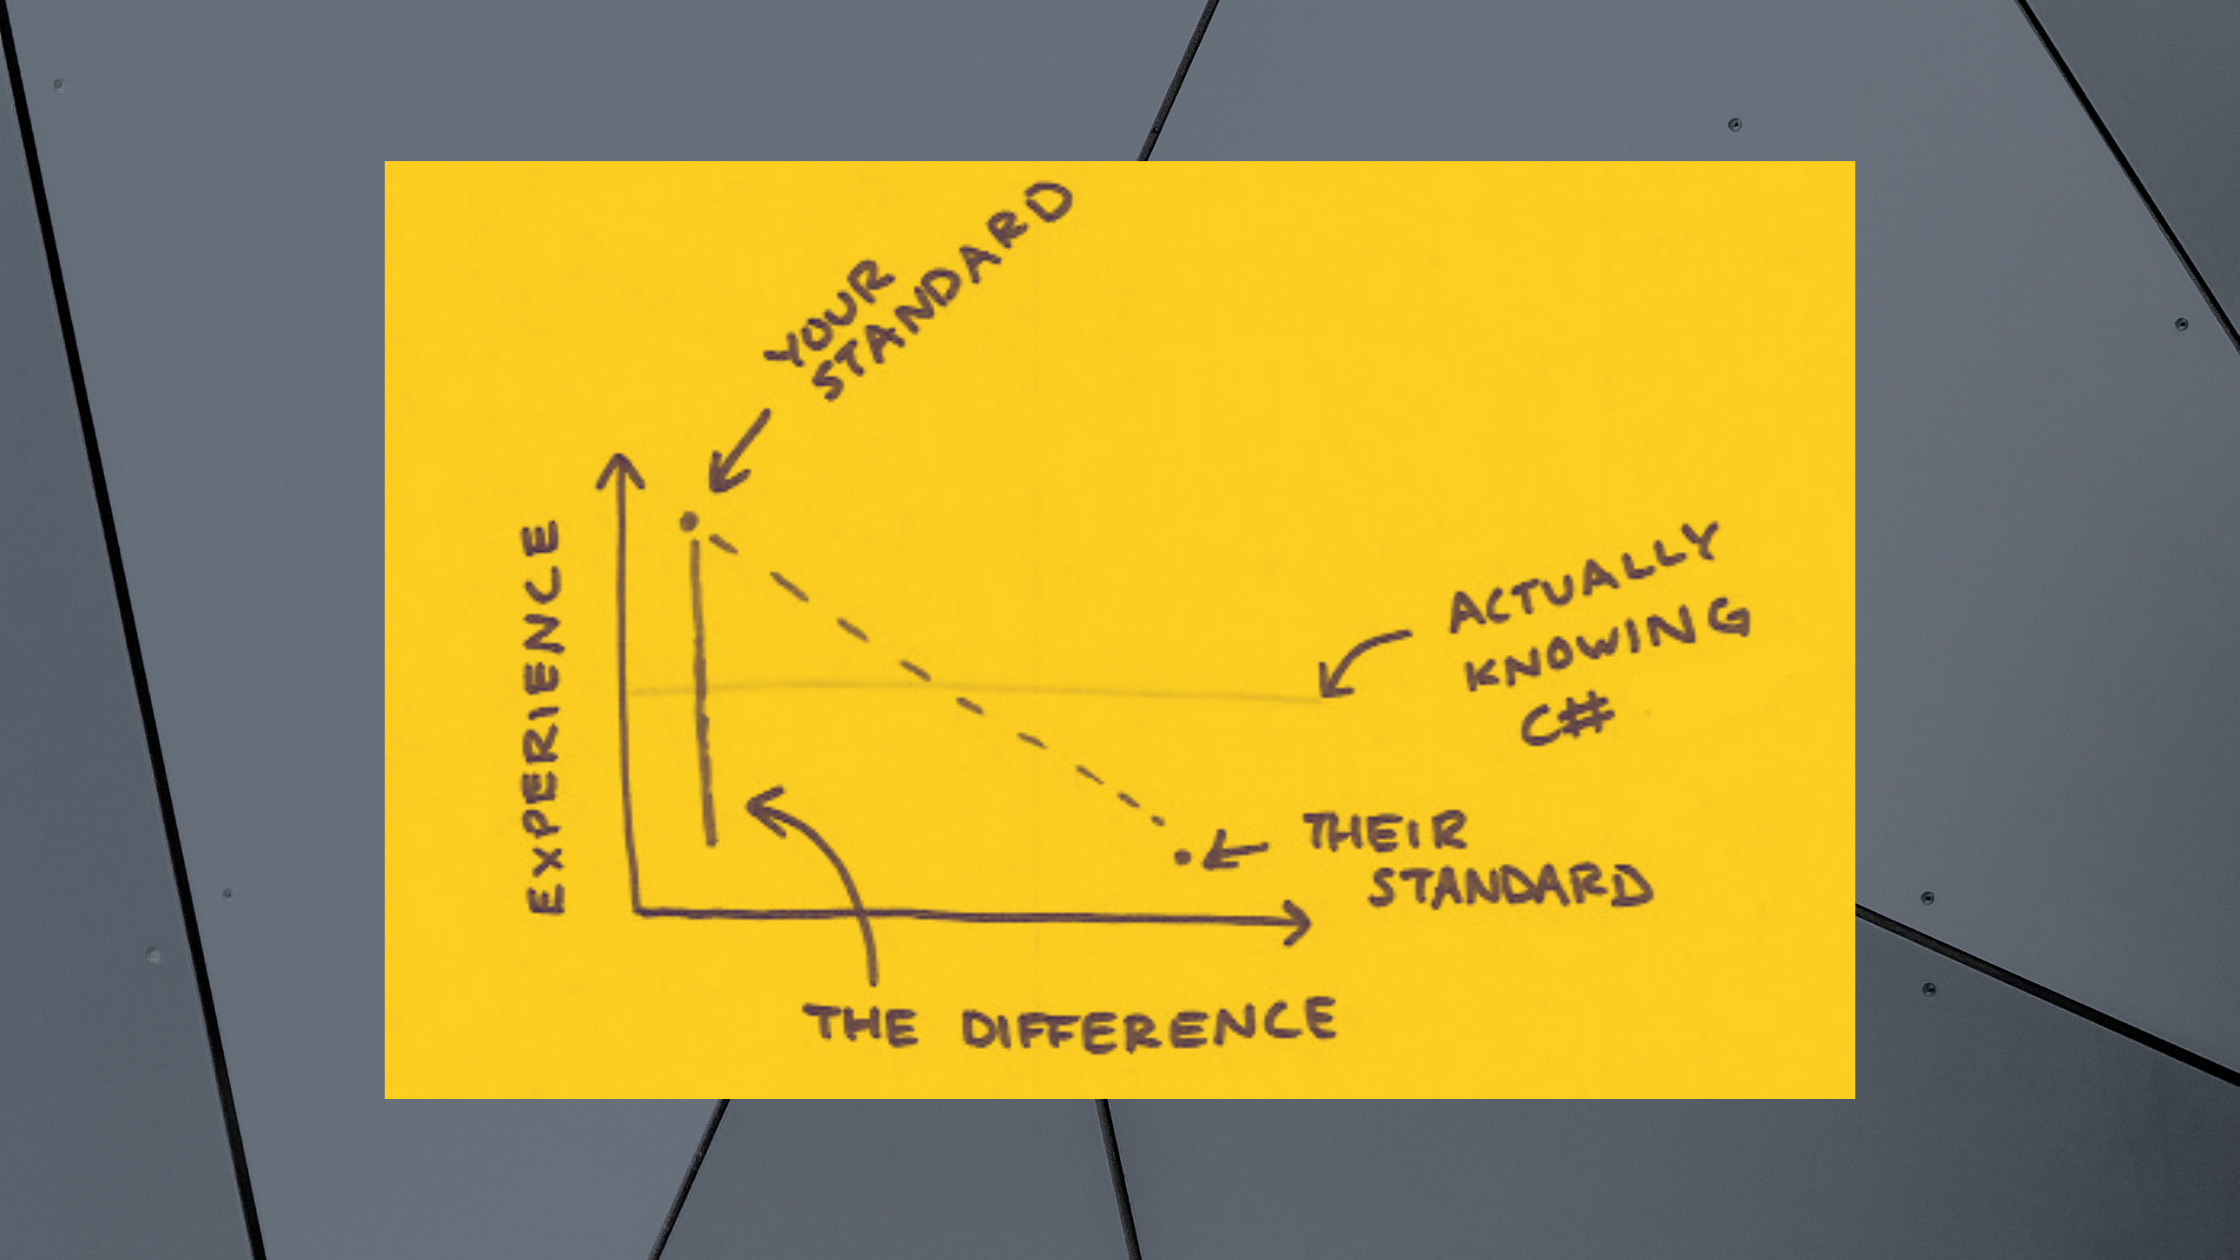 YOUR
STANDARD
EXPERIENCE
ACTUALLY
KNOWING
C#
THEIR
STANDARD
THE DIFFERENCE